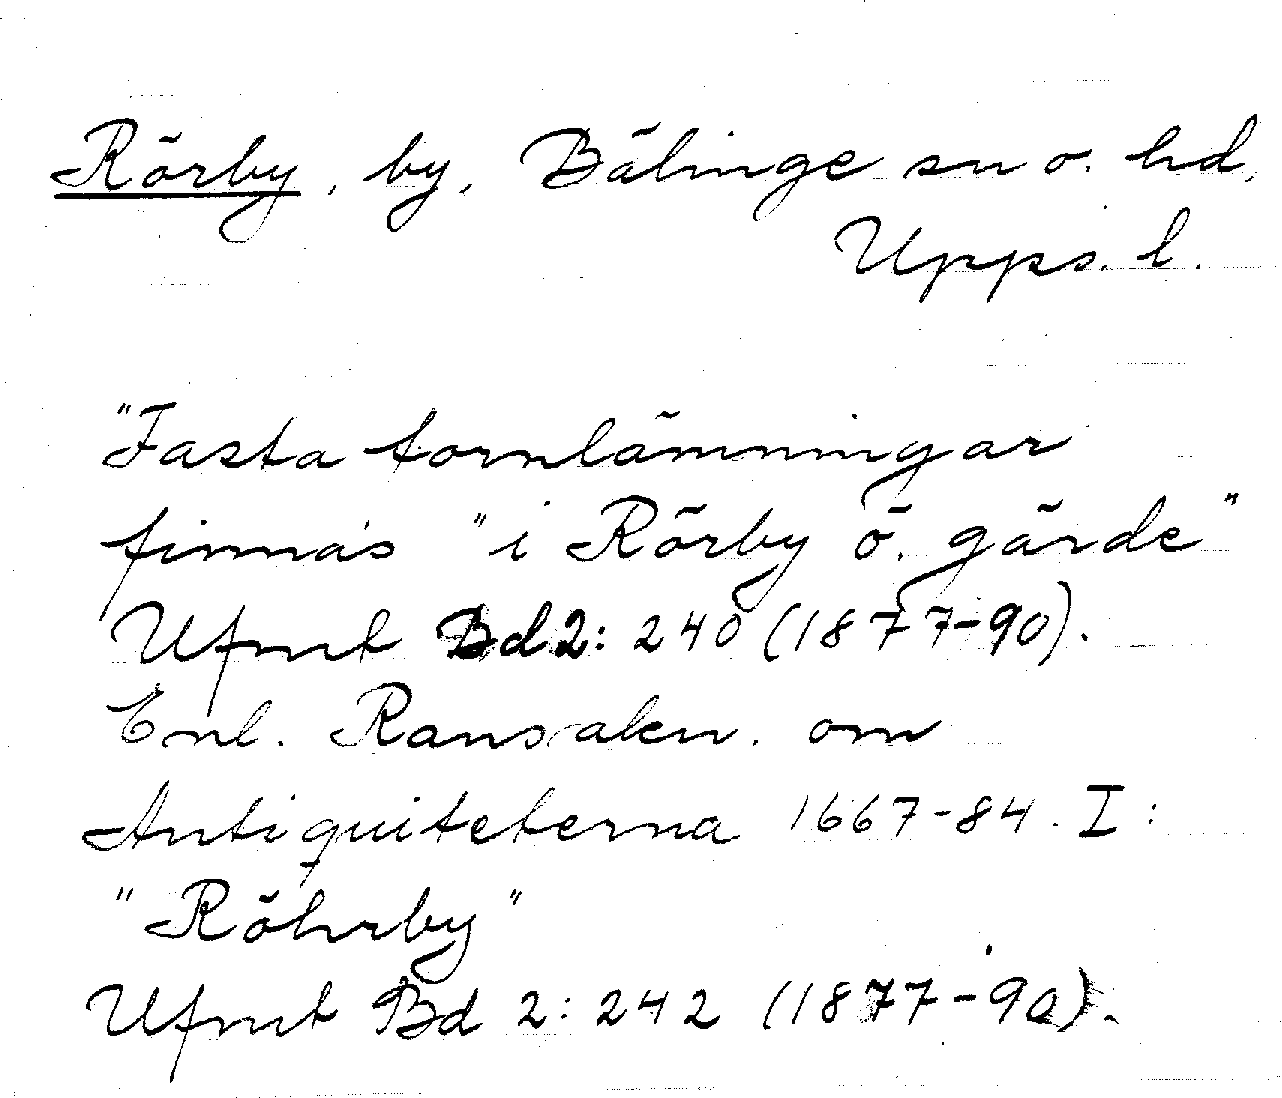 Rörby, by, Bälinge sn o. hd,
Upps. l.
"Fasta fornlämningar
finnas "i Rörby ö. gärde"
Ufmt Bd 2: 240 (1877-90).
Enl. Ransakn. om
Antiquiteterna 1667-84. I:
"Röhrby"
Ufmt Bd 2: 242 (1877-90).